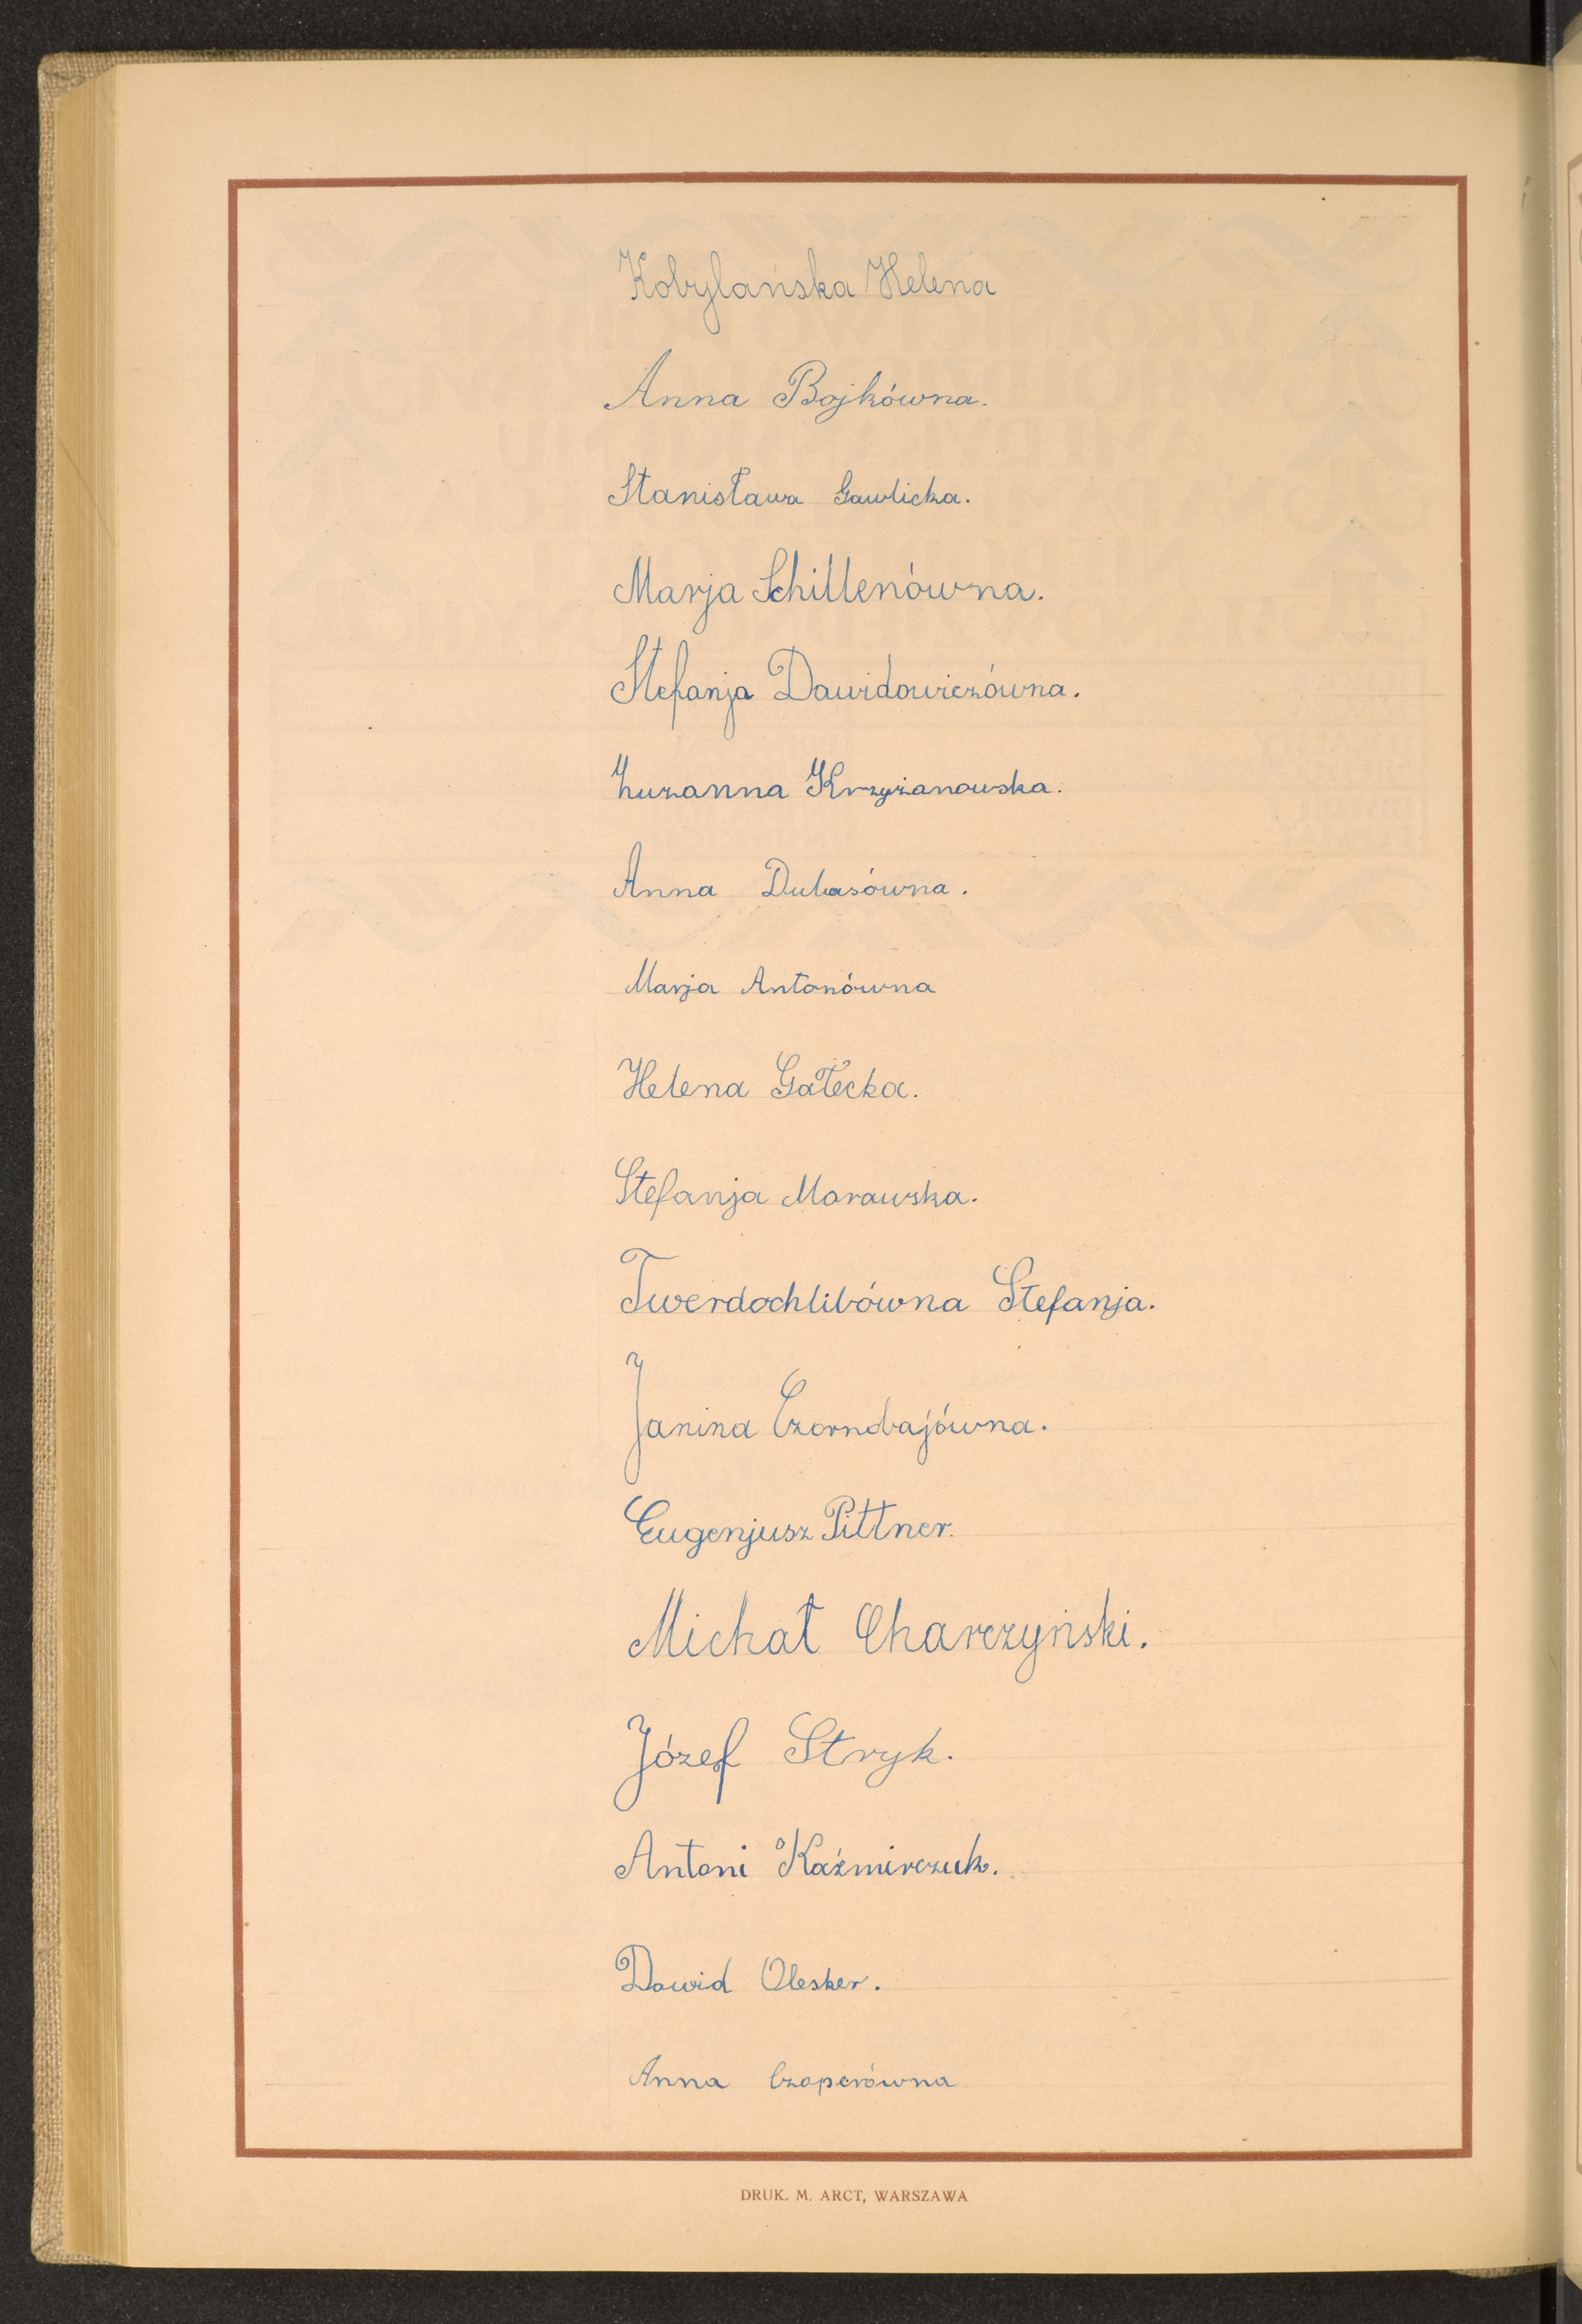 Kobylańska Helena
Anna Bojkówna.
Stanisława Gawlicka.
Marja Schillenówna.
Stefanja Dawidowiczówna.
Zuzanna Krzyżanowska.
Anna Dubasówna.
Marja Antonówna
Helena Gałecka.
Stefanja Morawska.
Twerdochlibówna Stefanja.
Janina Czornobajówna.
Eugenjusz Pittner.
Michał Charczyński.
Józef Stryk.
Antoni Kaźmirczuk.
Dawid Olesker.
Anna Czoperówna
DRUK. M. ARCT, WARSZAWA